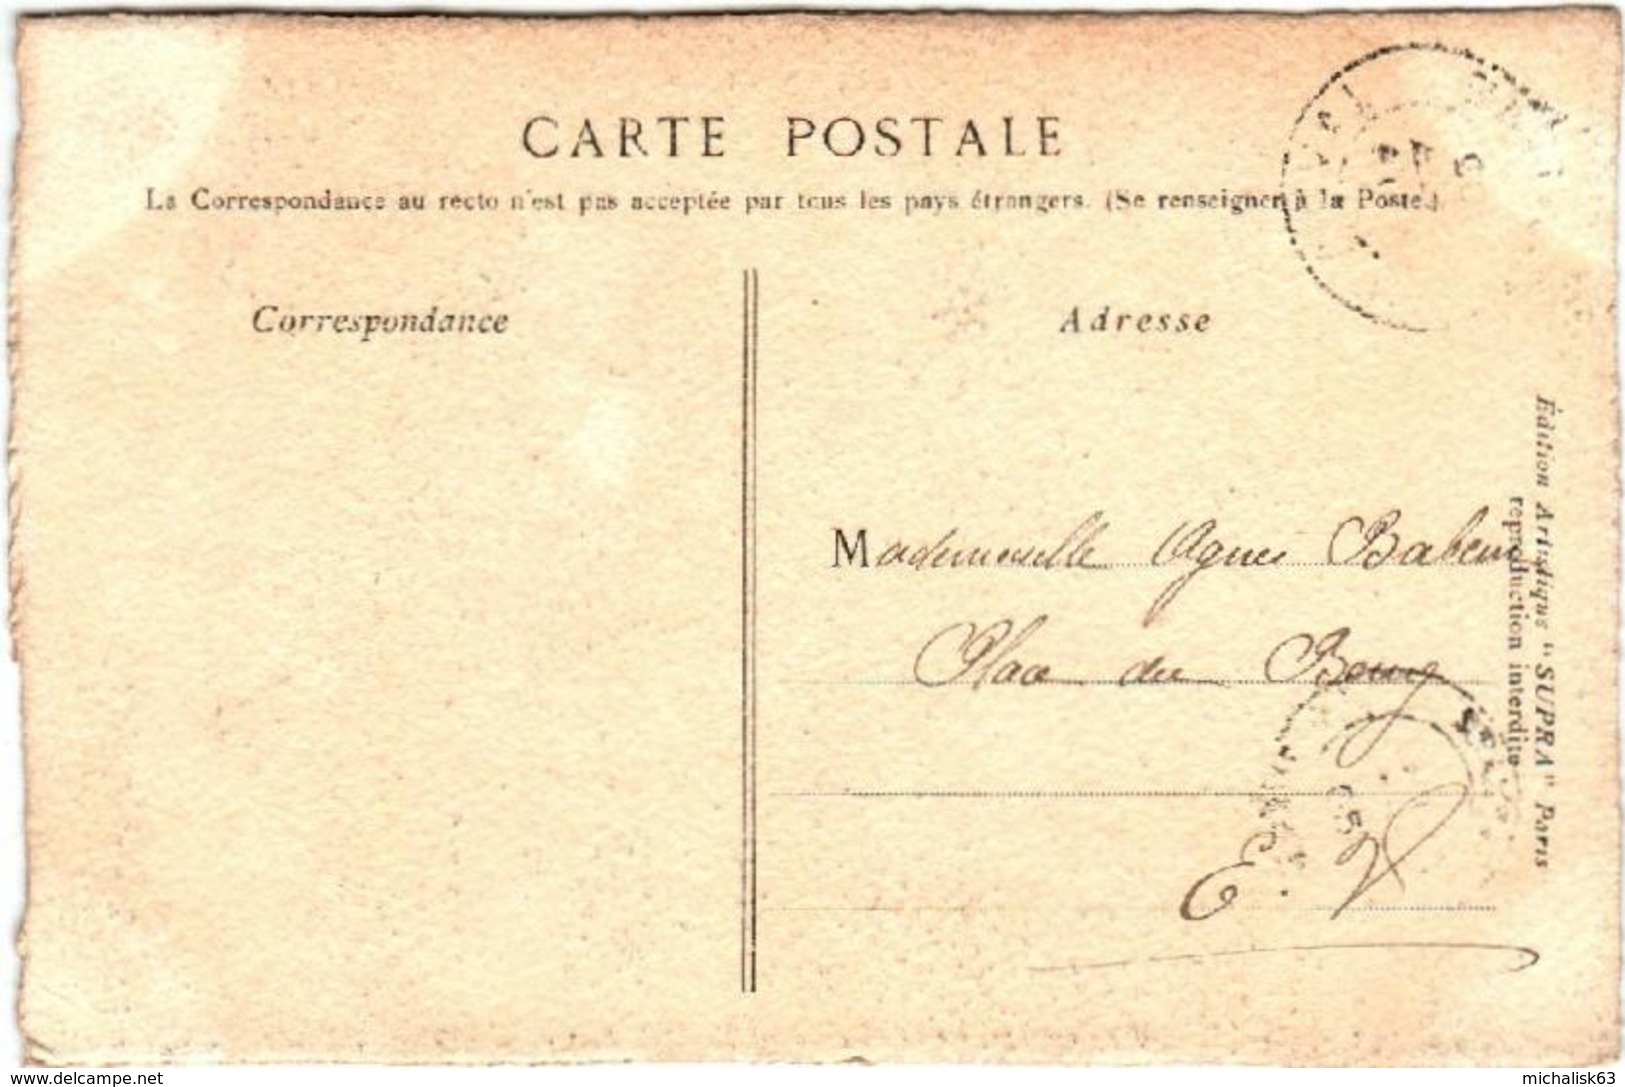 CARTE POSTALE
La Correspondance au recto n'est pas acceptée par tous les pays étrangers. (Se renseigner à la Poste.)
Correspondance
Adresse
Mademoiselle Agnes
Place du Bourg
E. V.
Édition Artistique "SUPRA" Paris
reproduction interdite
05
www.delcampe.net
michalisk63